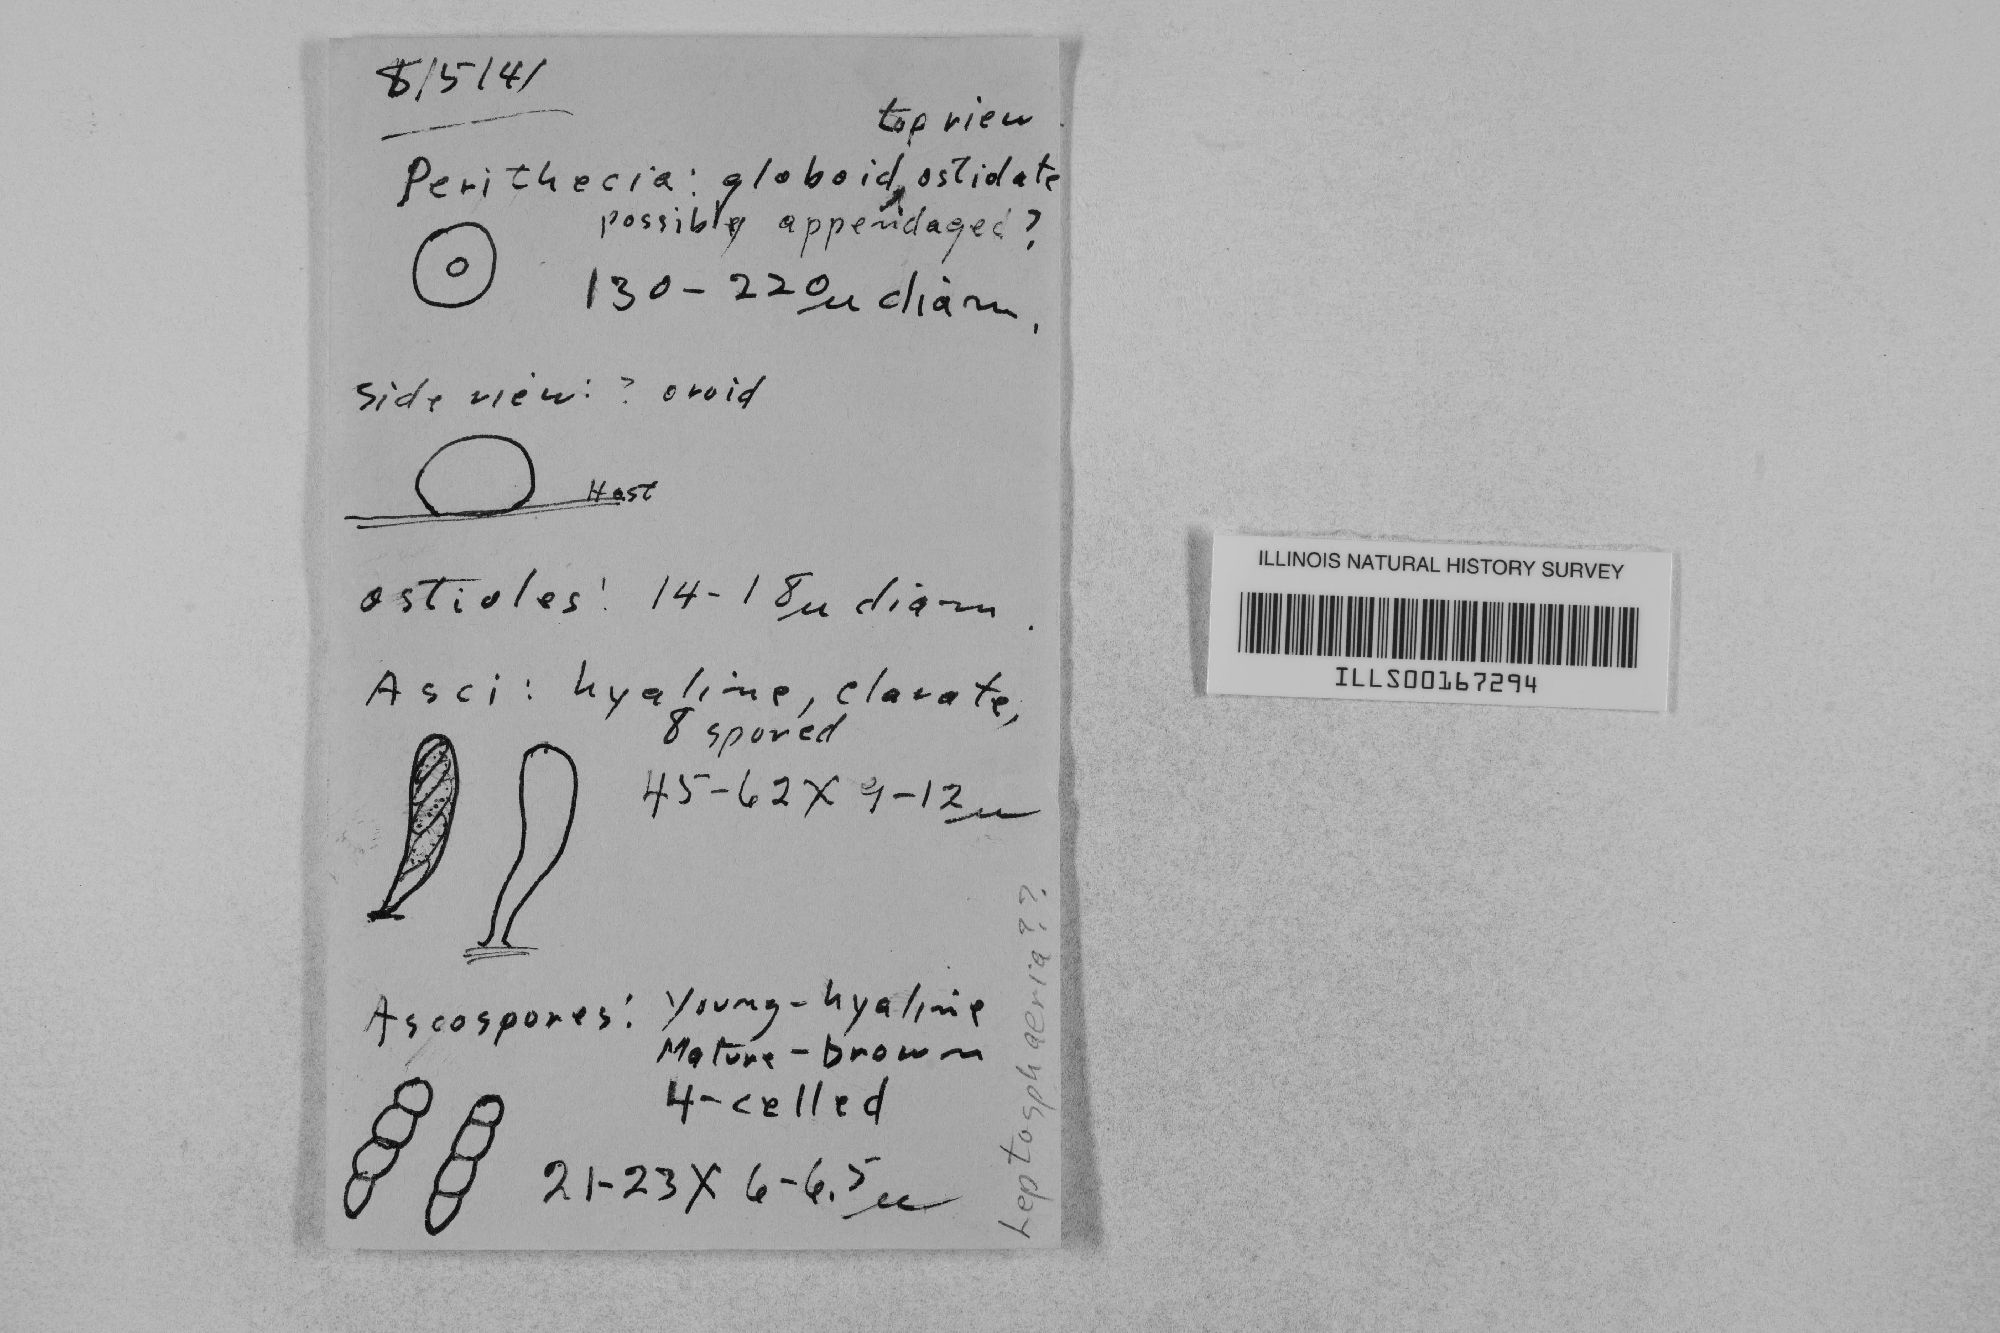 8/5/41
top view
Perithecia: globoid, ostidate
possibly appendaged?
130-220µ diam.
Side view: ? ovoid
Host
ostioles: 14-18µ diam.
Asci: hyaline, clavate,
8 spored
45-62 X 9-12µ
Ascospores: Young-hyaline
Mature-brown
4-celled
21-23 X 6-6.5µ
Leptosphaeria??
ILLINOIS NATURAL HISTORY SURVEY
ILLS00167294